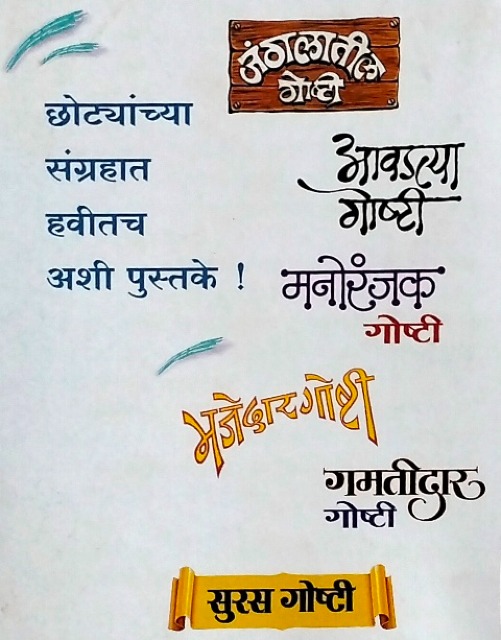 जंगलातील
गोष्टी
छोट्यांच्या
संग्रहात
हवीतच
अशी पुस्तके !
आवडत्या
गोष्टी
मनोरंजक
गोष्टी
मजेदार गोष्टी
गमतीदार
गोष्टी
सुरस गोष्टी